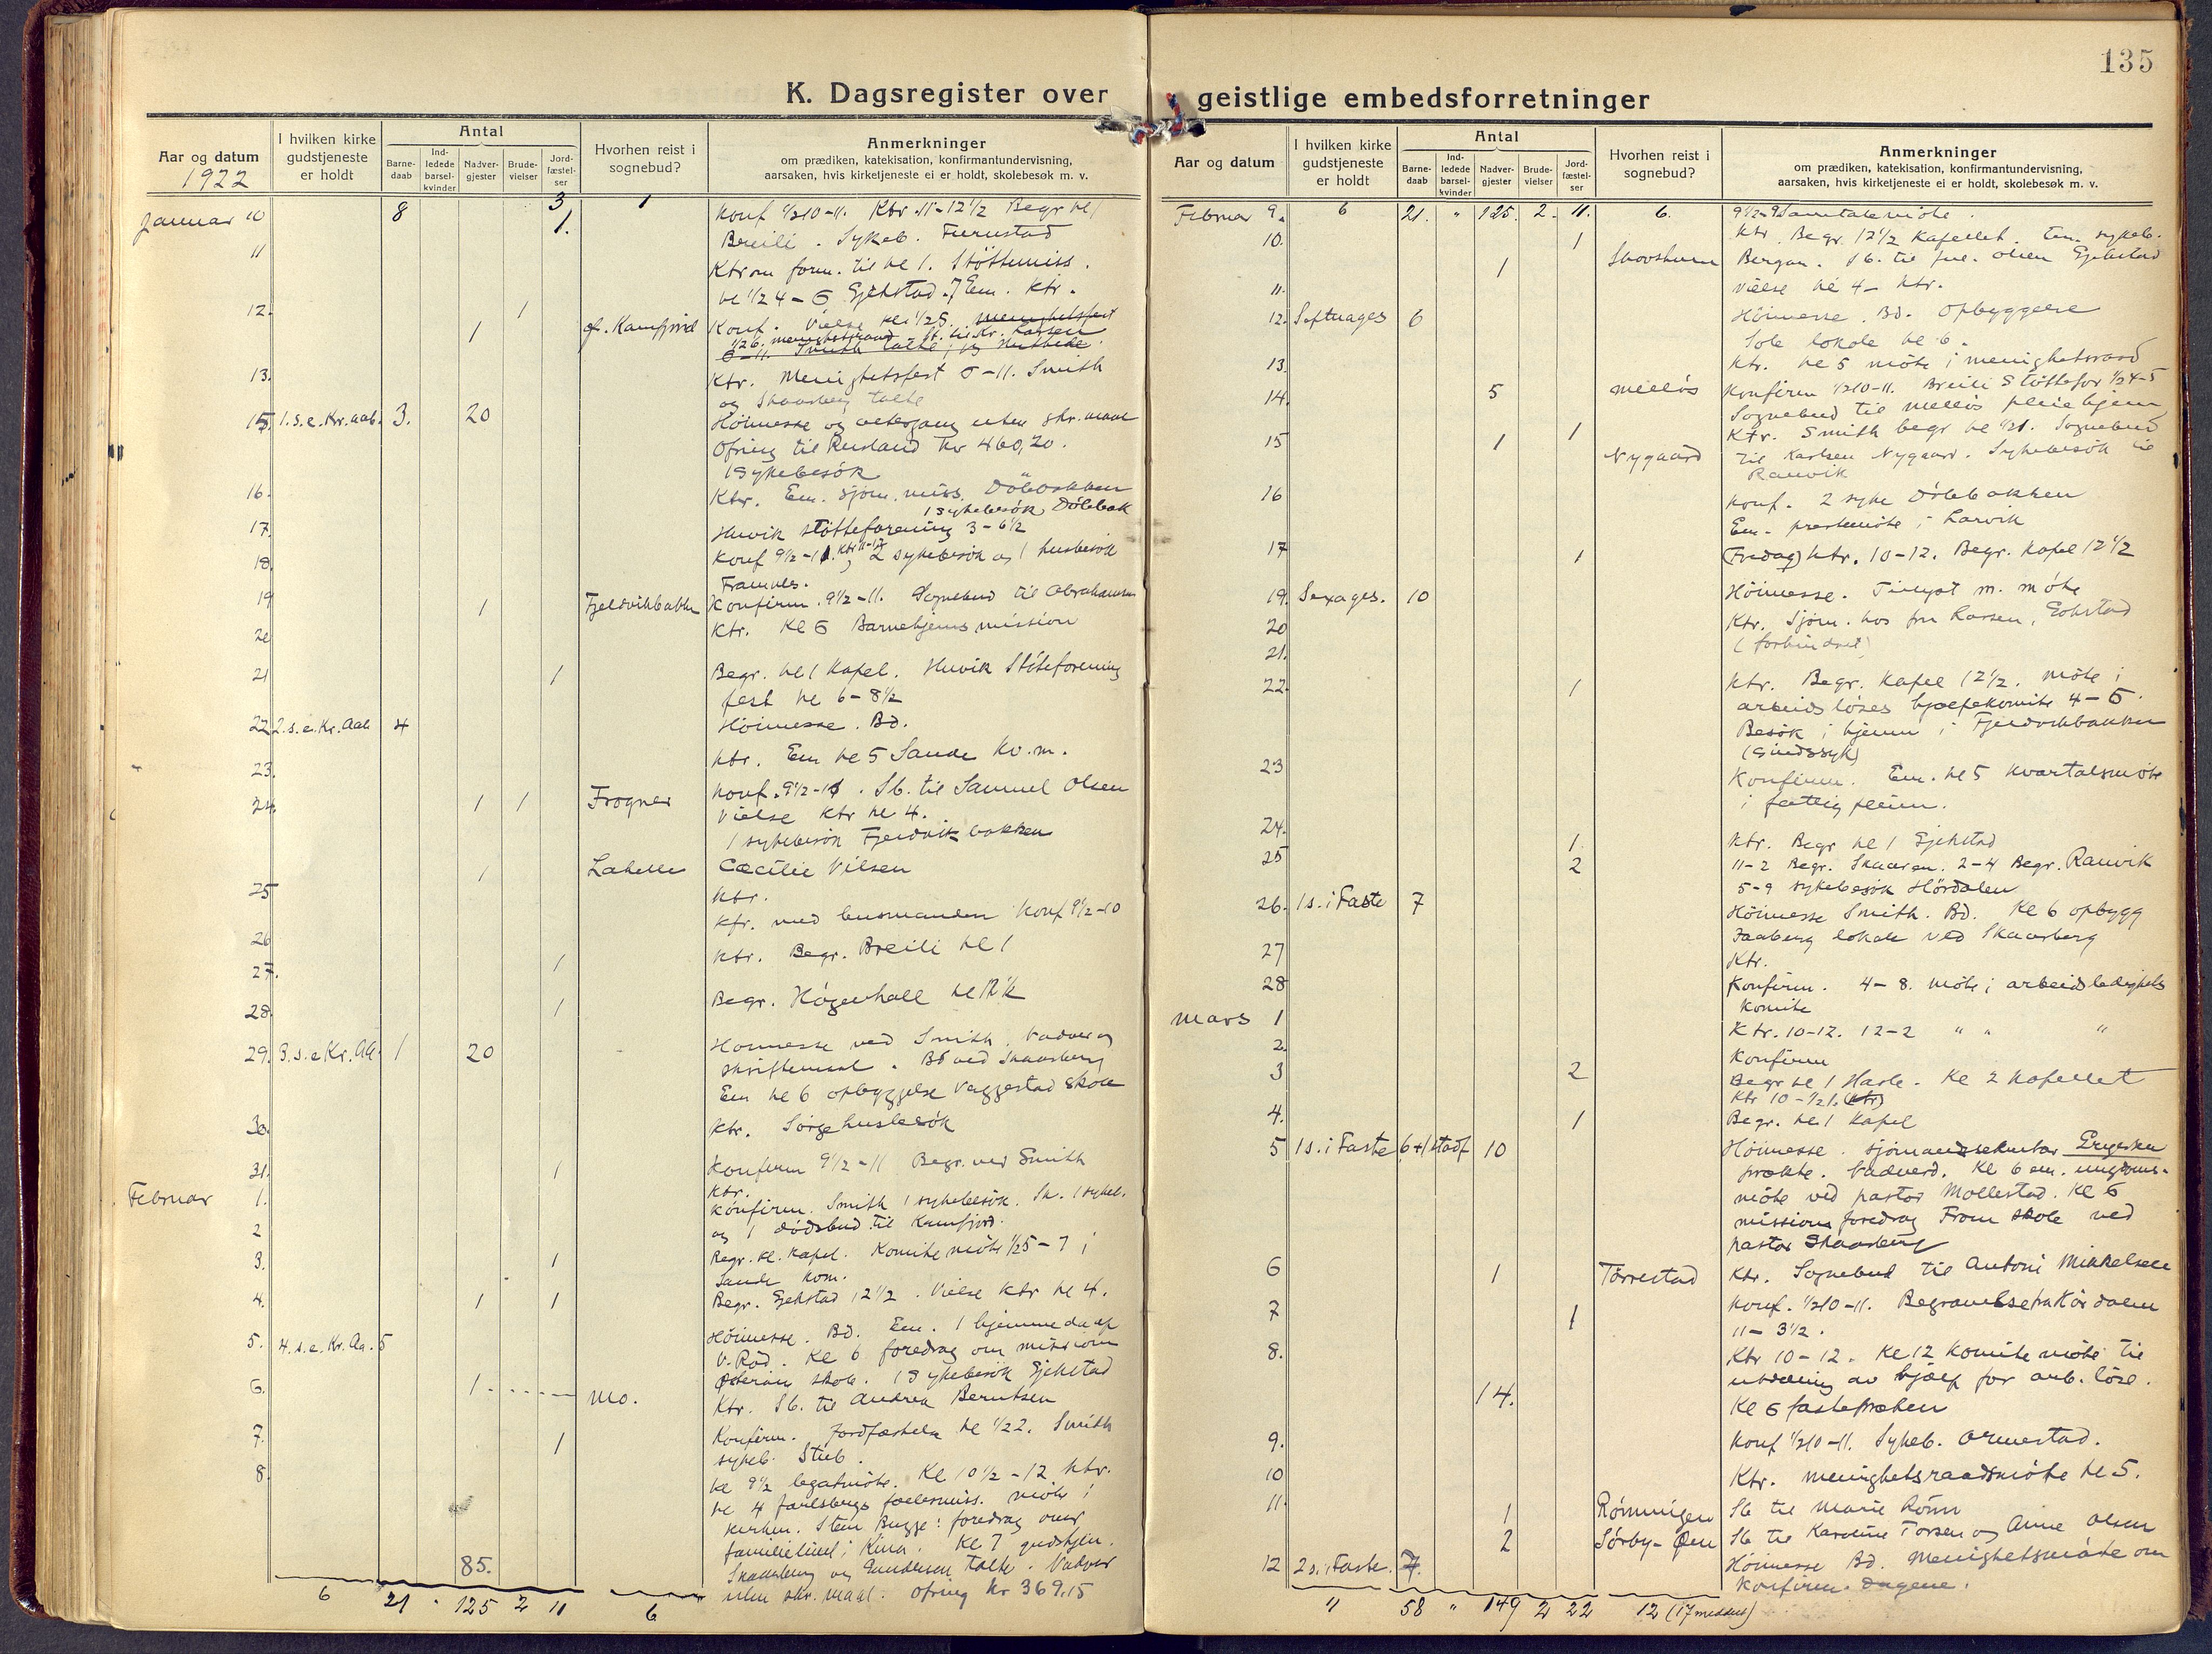 135
K. Dagsregister over geistlige embedsforretninger
Aar og datum
1922
I hvilken kirke gudstjeneste er holdt
Antal
Barne-daab
Ind-ledede barsel-kvinder
Nadver-gjester
Brude-vielser
Jord-fæstel-ser
Hvorhen reist i sognebud?
Anmerkninger
om prædiken, katekisation, konfirmantundervisning,
aarsaken, hvis kirketjeneste ei er holdt, skolebesøk m. v.
8 3 1
Januar 10 1. Konf 1/2 10-11. Ktr. 11-12 1/2 Begr kl 1
Breili. Sykeb. Furustad
11 Ktr om form. til kl 1. Støttemiss.
kl 1/2 4 - 6 Gjekstad. 7 Em. Ktr.
12. 1 1 Kamfjord Konf. Vielse kl. 1/2 5.
13. Ktr. Menighetsfest 6-11. Smith
og Skaarberg talte
15. 1. s. e. Kr. aab. 3. 20 Høimesse og altergang uten skr. maal
Ofring til Rusland Kr 460,20.
1 Sykebesøk
16. Ktr. Em. Sjøm. miss. Dølebakken
1 sykebesøk Dølebak
17. Huvik støtteforening 3-6 1/2
18. Konf 9 1/2-11. Ktr 11-12 2 sykebesøk og 1 husbesøk
Framnes.
19 1 Fjeldvikbakken Konfirm. 9 1/2-11. Sognebud til Abrahamsen
20 Ktr. Kl 6 Barnehjems mission
21 1 Begr. kl 1 Kapel. Huvik Støteforening
fest kl 6-8 1/2
22 2. s. e. Kr. Aab 4 Høimesse. Bd.
23. Ktr. Em kl 5 Sande Kv. m.
24. 1 1 Frogner Konf. 9 1/2-11. Sb. til Samuel Olsen
Vielse Ktr kl 4.
1 sykebesøk Fjeldvikbakken
1 Lahelle Cæcilie Nilsen
25 Ktr.
26 Kfr. med Konf 9 1/2-10
27. 1 Ktr. Begr. Breili kl 1
28. 1 Begr. Høgenhall kl
29. 3. s. e Kr. Aa. 1 20 Høimesse ved Smith. Nadver og
skriftemaal. Bd ved Skaarberg
Em kl 6 opbyggelse Vaggestad skole
30. Ktr. Sørgehusbesøk
31. 1 Konfirm 9 1/2-11 Begr. ved Smith
Februar 1. Ktr.
Konfirm. Smith 1 sykebesøk. Sk. 1 sykeb.
2 og 1 dødsbud til Kamfjord.
3. 1 Begr. kl. Kapel. Komite møte 1/2 5-7 i
Sande kom.
4. 1 1 Begr. Gjekstad 12 1/2. Vielse Ktr kl 4.
5. 4. s. e. Kr. Aa. 5 Høimesse. Bd. Em. 1 hjemmedaap
V. Rød. Kl 6 foredrag om mission
skole. 1 Sykebesøk Gjekstad
6. 1 Mo. Ktr. Sb. til Andrea Berntsen
7. 1 Konfirm. Jordfæstelse kl 1/2 2. Smith
sykeb. Stub.
8. Kl 9 1/2 legatmøte. Kl 10 1/2-12 Ktr.
kl 4 Jarlsbergs fællesmiss. møte i
kirken. Sten Bugge: foredrag over
familielivet i Kina. Kl 7 gudstjen.
85. Skaarberg og Gundersen talte. Nadver
uten skr. maal. Ofring kr 369,15
6 21 " 125 2 11 6
Aar og datum
I hvilken kirke gudstjeneste er holdt
Antal
Barne-daab
Ind-ledede barsel-kvinder
Nadver-gjester
Brude-vielser
Jord-fæstel-ser
Hvorhen reist i sognebud?
Anmerkninger
om prædiken, katekisation, konfirmantundervisning,
aarsaken, hvis kirketjeneste ei er holdt, skolebesøk m. v.
Februar 9. 6 21. " 125. 2. 11. 6. 9 1/2-9 Samtalemøte.
10. 1 Ktr. Begr. 12 1/2 Kapellet. Em. sykeb.
1 Skovheim Bergan. Sb. til Olsen Gjekstad
11. Vielse kl 4- Ktr.
12. Septuages 6 Høimesse. Bd. Opbyggelse
Sole lokale kl 6.
13. Ktr. kl 5 møte i menighetsraad
14. 5 Melløs Konfirm 1/2 10-11. Breili Støttefor 1/2 4-5
Sognebud til Melløs pleiehjem
15 1 1 Nygaard Ktr. Smith begr kl 1/2 1. Sognebud
til Karlsen Nygaard. Sykebesøk til
Ranvik
16 Konf. 2 syke Dølebakken
Em. prestemøte i Larvik
17 1 (Fredag) Ktr. 10-12. Begr. Kapel 12 1/2
19. Sexages. 10 Høimesse. Tinlyst m. møte
20 Ktr. Sjøm. hos fru Larsen, Gokstad
21. (forhindret)
22. 1 Ktr. Begr. Kapel 12 1/2. Møte i
arbeidsløses hjælpekomite 4-6.
Besøk i hjemm i Fjeldvikbakken
(Sindssyk)
23 Konfirm. Em. kl 5 kvartalsmøte
i
24. 1. Ktr. Begr kl 1 Gjekstad
25 2 11-2 Begr. Skaaren. 2-4 Begr. Ranvik
5-9 sykebesøk Hørdalen
26. 1 s. i Faste 7 Høimesse Smith. Bd. Kl 6 opbygg
lokale ved Skaarberg
27 Ktr.
28 Konfirm. 4-8. møte i arbeidsledighets
komite
Mars 1 Ktr. 10-12. 12-2 " " "
2. Konfirm
3 2 Begr kl 1 Hasle. Kl 2 Kapellet
Ktr 10-1/2 1. (Ktr)
4. 1 Begr. kl 1 Kapel
5 1 s. i Faste 6+1 stadf 10 Høimesse. Sjømandssekretær
prækte. Nadverd. Kl 6 em. ungdoms-
møte ved pastor Mollestad. Kl 6
missions foredrag Fram skole ved
pastor Skaarberg
6 1 Tørrestad Ktr. Sognebud til Antoni Mikkelsen
7 1 Konf. 1/2 10-11. Begravelse
11-3 1/2.
8. Ktr 10-12. Kl 12 komite møte til
utdeling av hjælp for arb. løse.
14. Kl 6 fastepræken
9. Konf 1/2 10-11. Sykeb. Ormestad.
10 Ktr. menighetsraadsmøte kl 5.
11. 1 Rømningen Sb til Marie Rønn
2 Sørby-Øen Sb til Karoline Torsen og Anne Olsen
12 2 s. i Faste. 7. Høimesse Bd. Menighetsmøte om
konfirm. dagene.
11 58 " 149 2 22 12